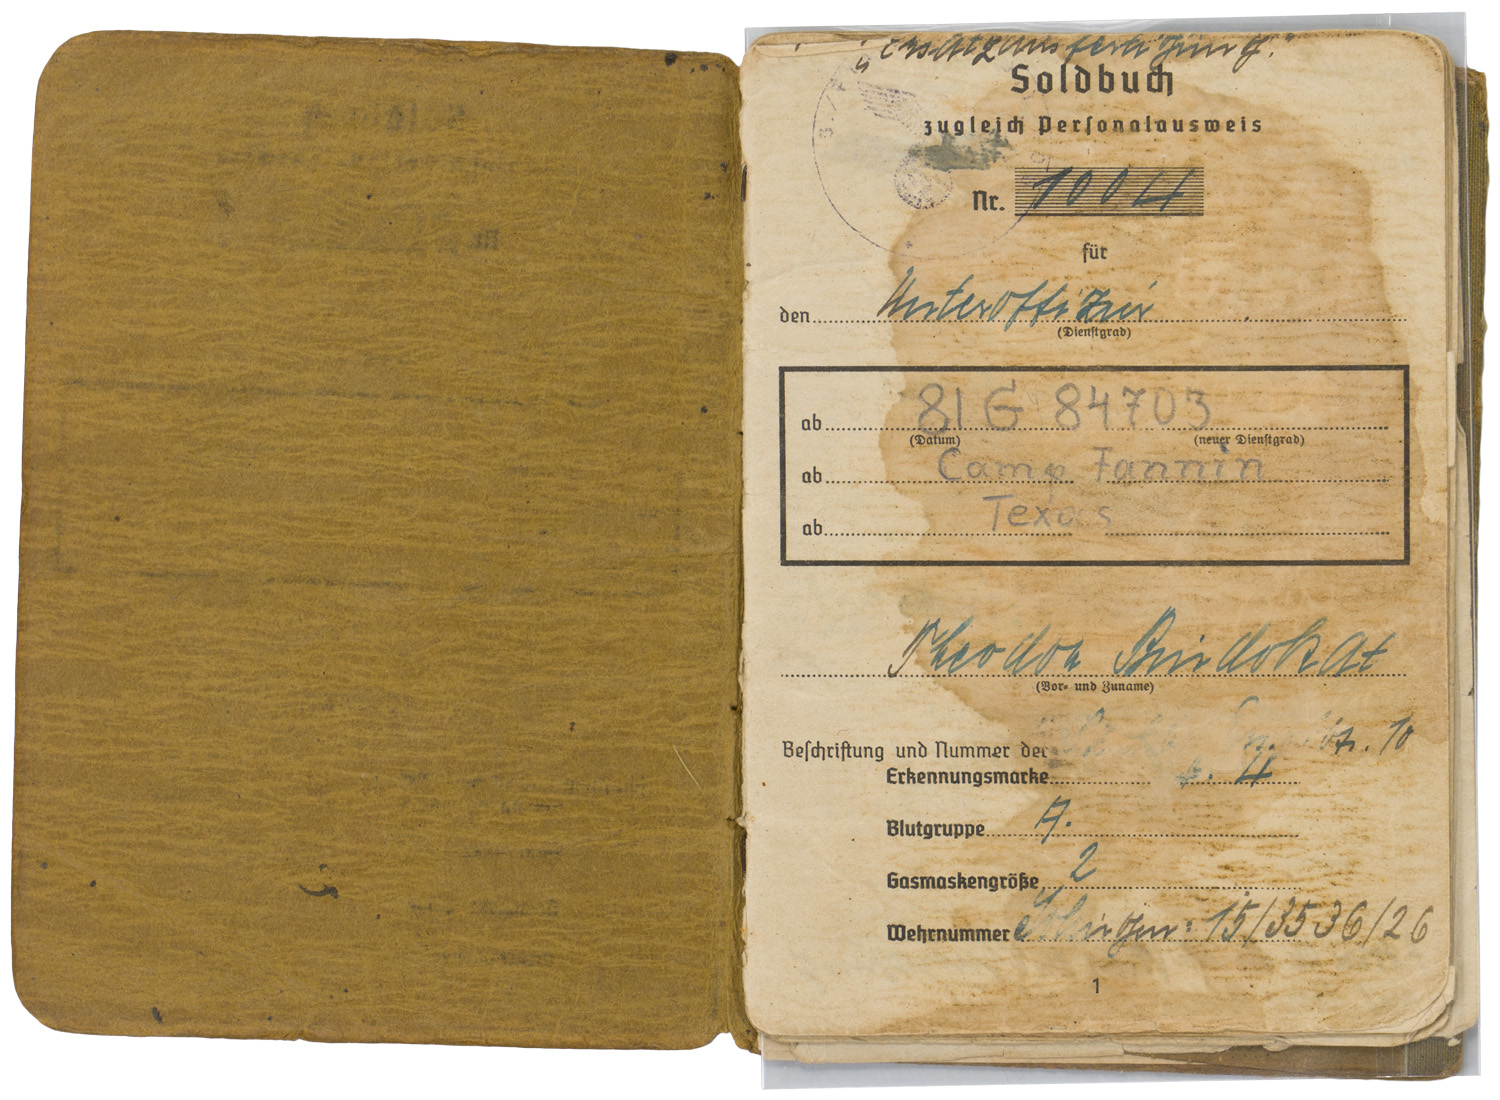 "Ersatzausfertigung."
Soldbuch
zugleich Personalausweis
Nr. 1004
für
den Unteroffizier
(Dienstgrad)
ab 81 G 84703
(Datum) (neuer Dienstgrad)
ab Camp Fannin
ab Texas
Theodor Bindokat
(Vor- und Zuname)
Beschriftung und Nummer der
Erkennungsmarke
Blutgruppe A.
Gasmaskengröße 2
Wehrnummer 15/35 36/26
1